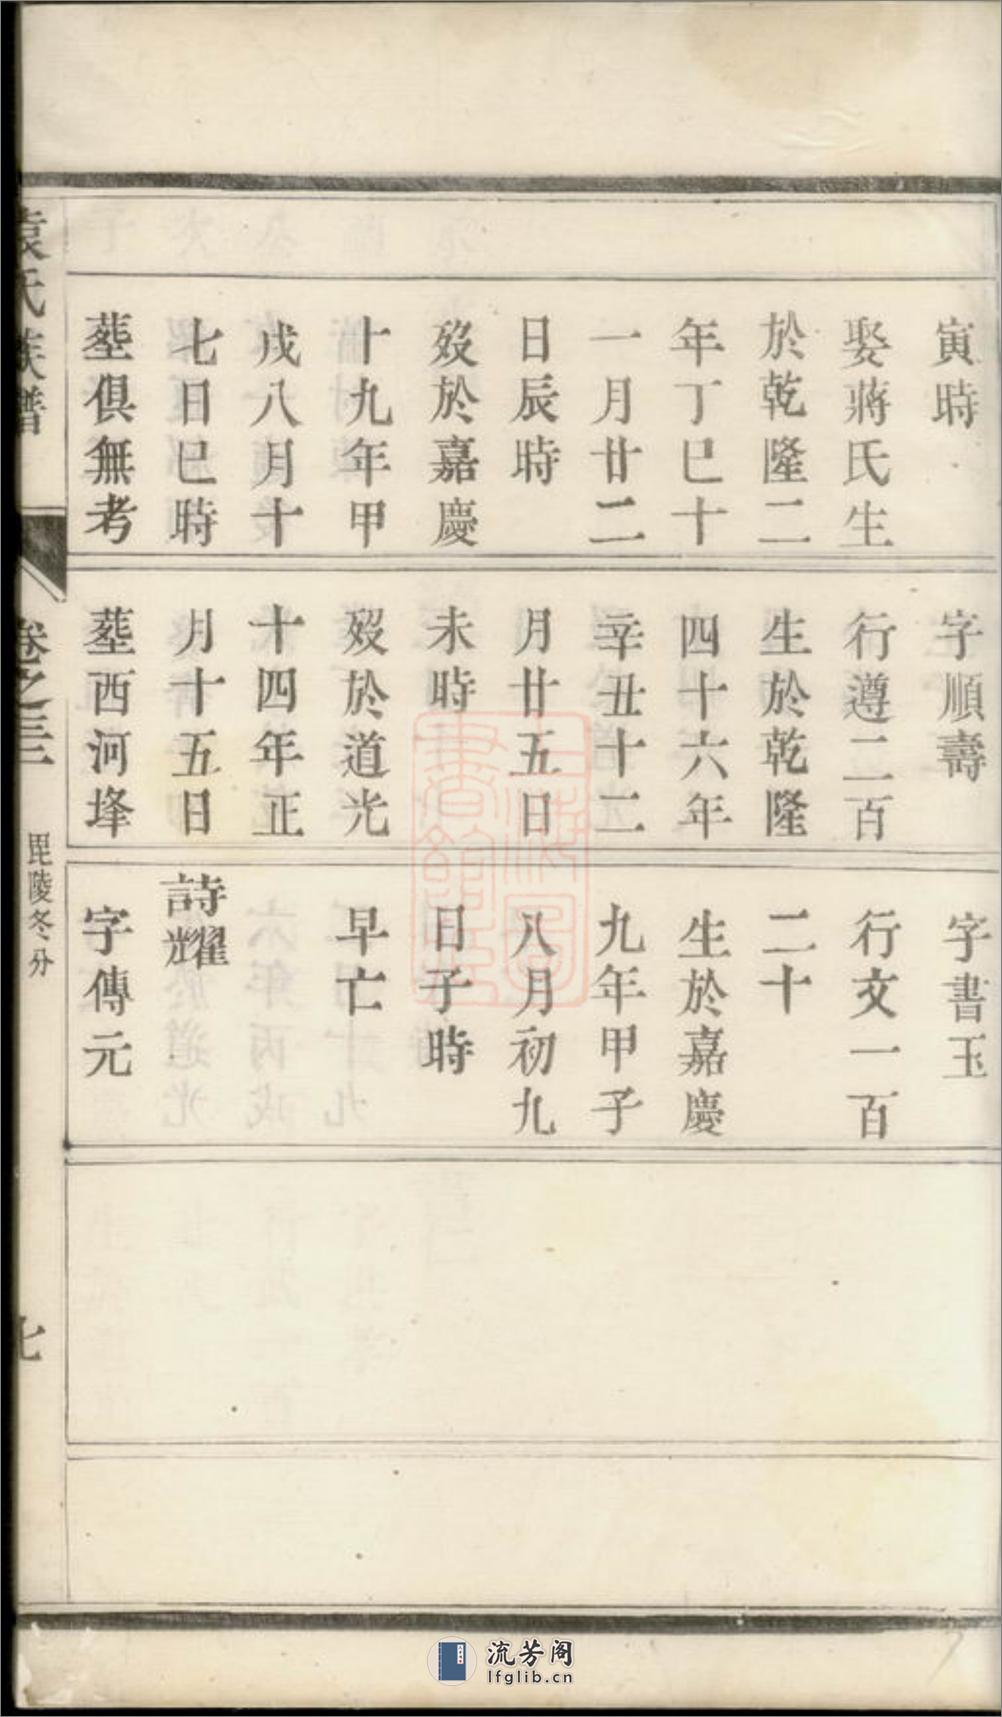 寅時
娶蔣氏生
於乾隆二
年丁巳十
一月廿二
日辰時
歿於嘉慶
十九年甲
戌八月十
七日巳時
塟俱無考
字順壽
行遵二百
生於乾隆
四十六年
辛丑十二
月廿五日
未時
歿於道光
十四年正
月十五日
塟西河埄
字書玉
行文一百
二十
生於嘉慶
九年甲子
八月初九
日子時
早亡
詩耀
字傳元
袁氏族譜
卷之三
毘陵冬分
七
流芳阁
lfglib.cn